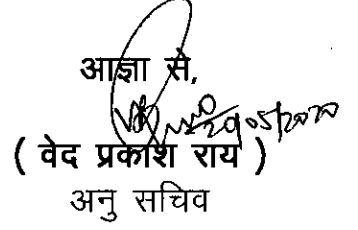 आज्ञा से,
29/05/2020
( वेद प्रकाश राय )
अनु सचिव